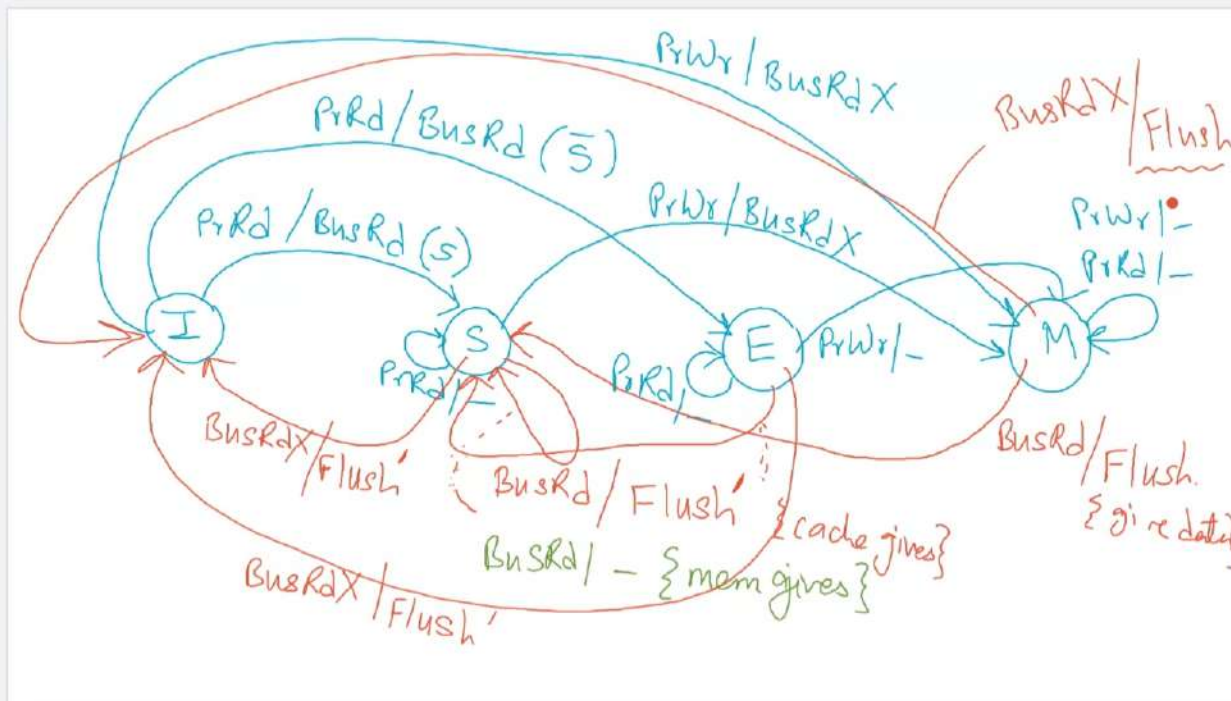 PrWr/BusRdX
BusRdX/Flush
PrRd/BusRd(S̄)
PrWr/BusRdX
PrWr/–
PrRd/–
PrRd/BusRd(S)
I
S
E
M
PrWr/–
PrRd/–
PrRd/–
BusRdX/Flush'
BusRd/Flush'
{cache gives}
BusRd/Flush.
{give data}
BusRd/– {mem gives}
BusRdX/Flush'